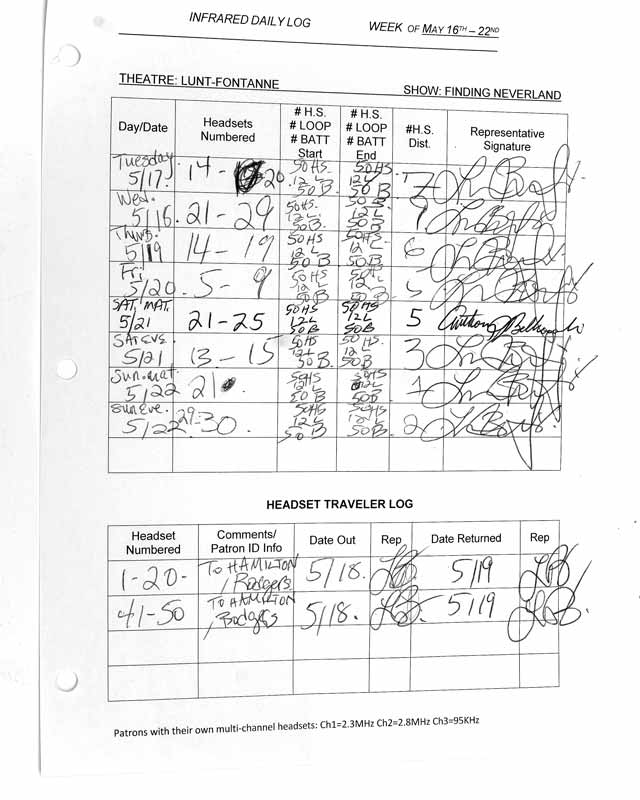 INFRARED DAILY LOG
WEEK OF MAY 16TH – 22ND
THEATRE: LUNT-FONTANNE
SHOW: FINDING NEVERLAND
Day/Date Headsets Numbered # H.S. # LOOP # BATT Start # H.S. # LOOP # BATT End #H.S. Dist. Representative Signature
Tuesday 5/17. 14 - 20 50 HS. 12 L. 50 B 50 HS 12 L 50 B 7
Wed. 5/16. 21 - 29 50 HS. 12 L. 50B. 50 S. 12 L 50 B 9
Thurs. 5/19 14 - 19 50 HS 12 L 50 B 50 HS 12 L 50 B. 6
Fri. 5/20. 5 - 9 50 HS 12 L 50 B 50 HS 12 50 B 5
SAT. MAT. 5/21 21-25 50 HS 12 L 50 B 50 HS. 12 L 50 B 5
SAT EVE. 5/21 13 - 15 50 HS 12 L 50 B 50 HS. 12 L. 50 B 3
Sun. mat. 5/22 21 50 HS 12 L 50 B 50 HS 12 L 50 B 1
Sun Eve. 5/22 29-30. 50 HS 12 L 50 B 50 HS 12 L 50 B. 2
HEADSET TRAVELER LOG
Headset Numbered Comments/ Patron ID Info Date Out Rep Date Returned Rep
1-20- To HAMILTON / Rodgers 5/18. LB 5/19 LB
41-50 To HAMILTON , Rodgers 5/18. LB 5/19 LB.
Patrons with their own multi-channel headsets: Ch1=2.3MHz Ch2=2.8MHz Ch3=95KHz